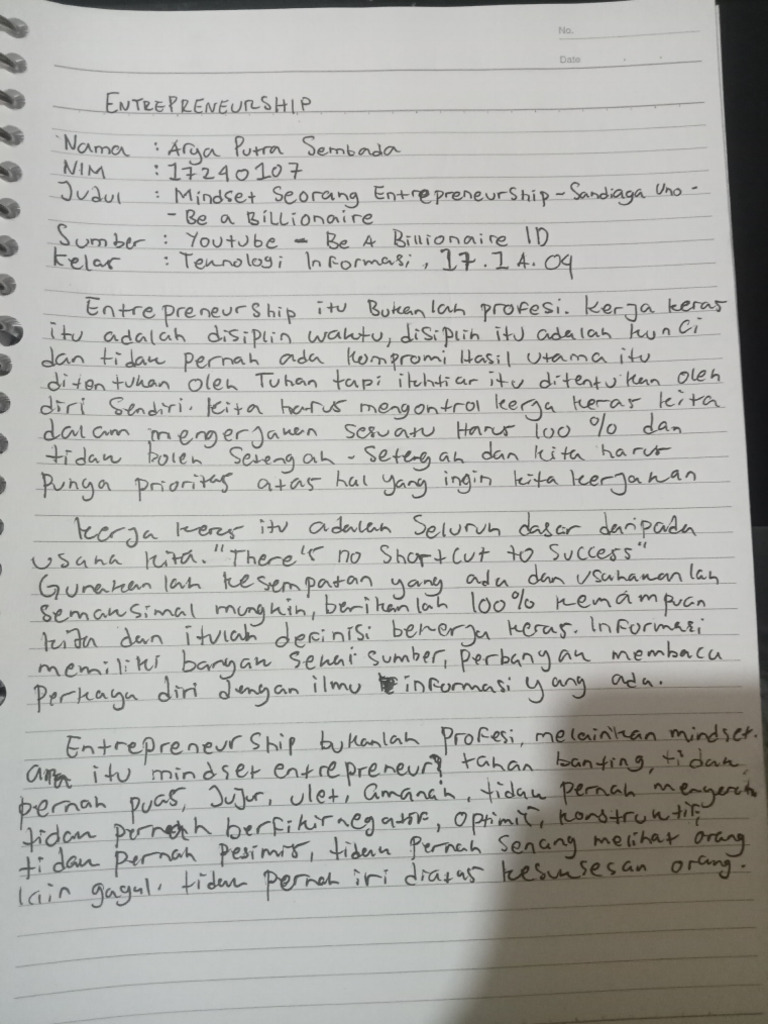 No.
Date
ENTREPRENEURSHIP
Nama : Arya Putra Sembada
NIM : 17240107
Judul : Mindset Seorang Entrepreneurship - Sandiaga Uno -
- Be a Billionaire
Sumber : Youtube - Be A Billionaire ID
Kelas : Teknologi Informasi, 17.1A.04
Entrepreneurship itu Bukanlah profesi. Kerja keras
itu adalah disiplin waktu, disiplin itu adalah kunci
dan tidak pernah ada kompromi Hasil utama itu
ditentukan oleh Tuhan tapi ikhtiar itu ditentukan oleh
diri sendiri. Kita harus mengontrol kerja keras kita
dalam mengerjakan sesuatu Harus 100 % dan
tidak boleh Setengah - Setengah dan kita harus
punya prioritas atas hal yang ingin kita kerjakan
Kerja keras itu adalah Seluruh dasar daripada
usaha kita. "There's no Shortcut to Success"
Gunakanlah kesempatan yang ada dan usahakanlah
semaksimal mungkin, berikanlah 100% kemampuan
kita dan itulah definisi bekerja keras. Informasi
memiliki banyak sekai sumber, perbanyak membaca
perkaya diri dengan ilmu informasi yang ada.
Entrepreneurship bukanlah Profesi, melainkan mindset.
apa itu mindset entrepreneur? tahan banting, tidak
pernah puas, Jujur, ulet, amanah, tidak pernah
tidak pernah berfikir negatif, optimis, konstruktif,
tidak pernah pesimis, tidak pernah senang melihat orang
lain gagal. tidak pernah iri diatas kesuksesan orang.